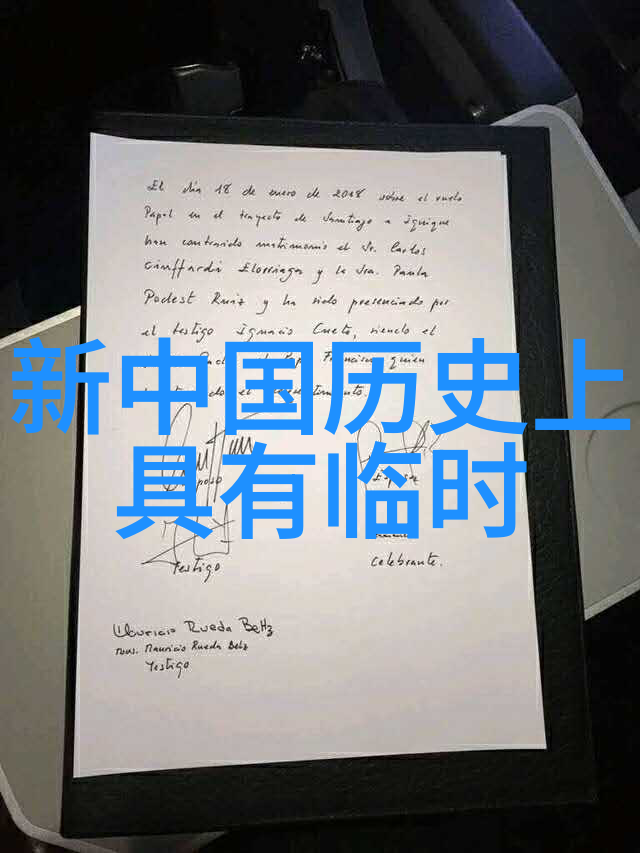 El día 18 de enero de 2018 sobre el vuelo
Papal en el trayecto de Santiago a Iquique
han contraido matrimonio el Sr. Carlos
Ciuffardi Elorriaga y la Sra. Paula
Podest Ruiz y ha sido presenciado por
el testigo Ignacio Cueto, siendo el
Francisco quien
el
新中国历史上
具有临时
Testigo
Celebrante.
Mauricio Rueda Beltz
Mons. Mauricio Rueda Beltz
Testigo